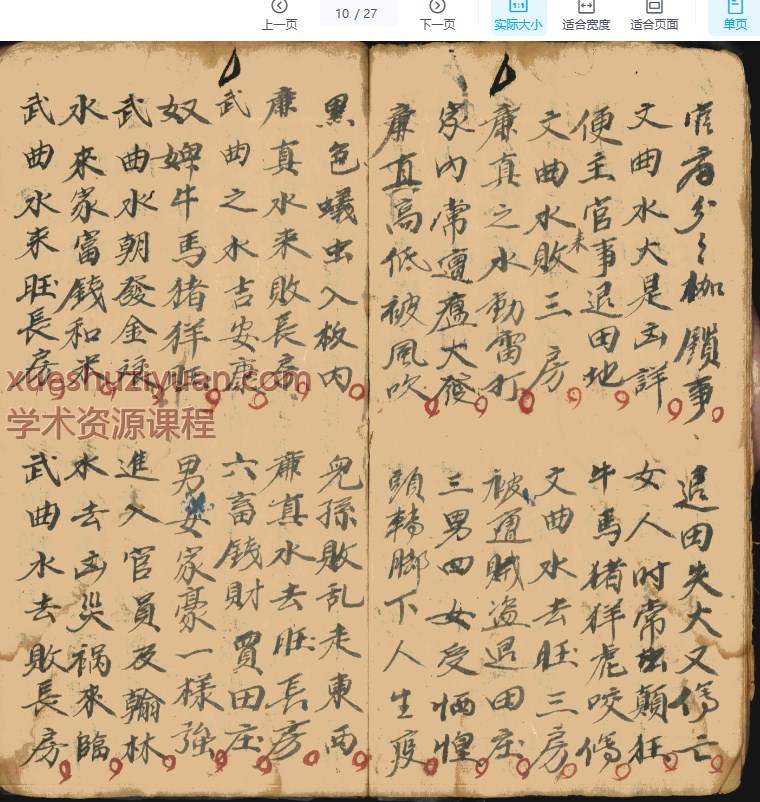 上一页
10 / 27
下一页
实际大小
适合宽度
适合页面
单页
官府分々枷鎖事
退田失火又傷亡
文曲水大是凶詳
女人时常出顛狂
便主官事退田地
牛馬猪羊虎咬傷
文曲水来敗三房
文曲水去旺三房
廉真之水動雷打
被遭賊盗退田庄
家内常遭瘟火發
三男四女受恓惶
廉真高低被風吹
頭轉脚下人生疫
黑色蟻虫入板内
兒孫敗乱走東西
廉真水来敗長房
廉真水去旺長房
武曲之水吉安康
六畜錢財買田庄
奴婢牛馬猪羊旺
男女家豪一樣強
武曲水朝發金禄
進入官員及翰林
水來家富錢和米
水去凶災禍來臨
武曲水来旺長房
武曲水去敗長房
xueshuziyuan.com
学术资源课程